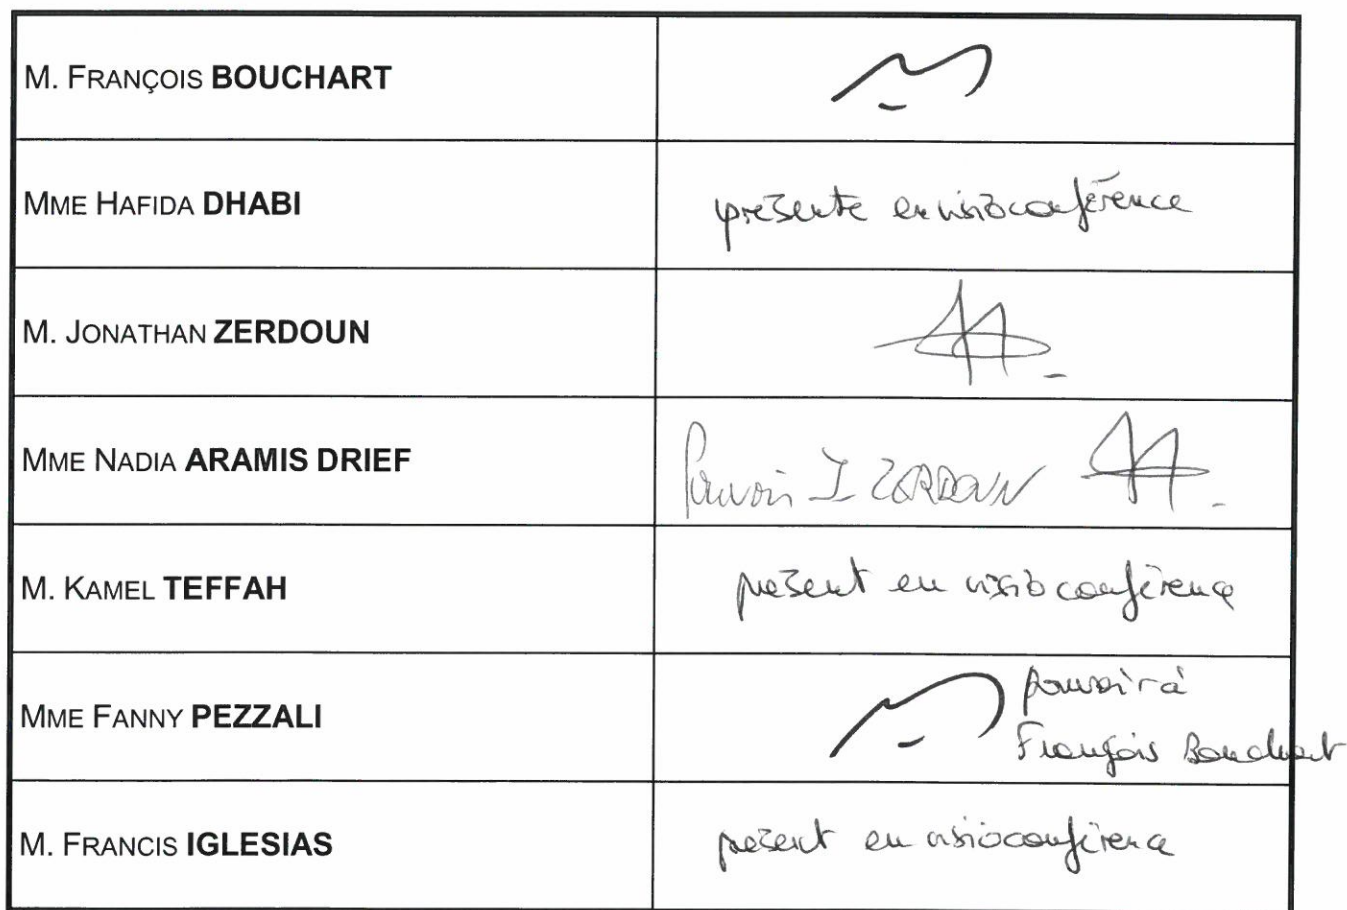 M. FRANÇOIS BOUCHART
MME HAFIDA DHABI présente en visioconférence
M. JONATHAN ZERDOUN
MME NADIA ARAMIS DRIEF Pouvoir J ZERDOUN
M. KAMEL TEFFAH présent en visioconférence
MME FANNY PEZZALI pouvoir à
François Bouchart
M. FRANCIS IGLESIAS présent en visioconférence